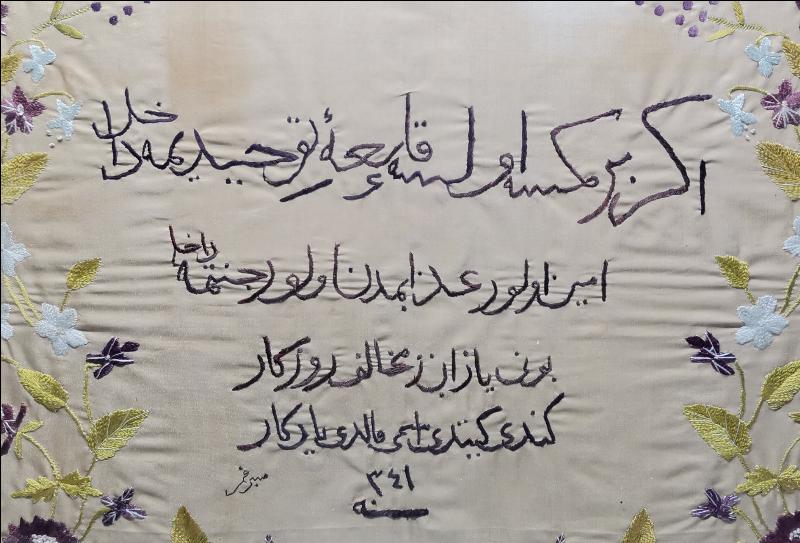 اكر بر كمسه اولسه قلعهٔ توحيديمه داخل
امين اولور عذابمدن اولور جنتمه داخل
بونى يازان روزكار
كندى كيتدى اسمى قالدى يادكار
٣٤١
سنه